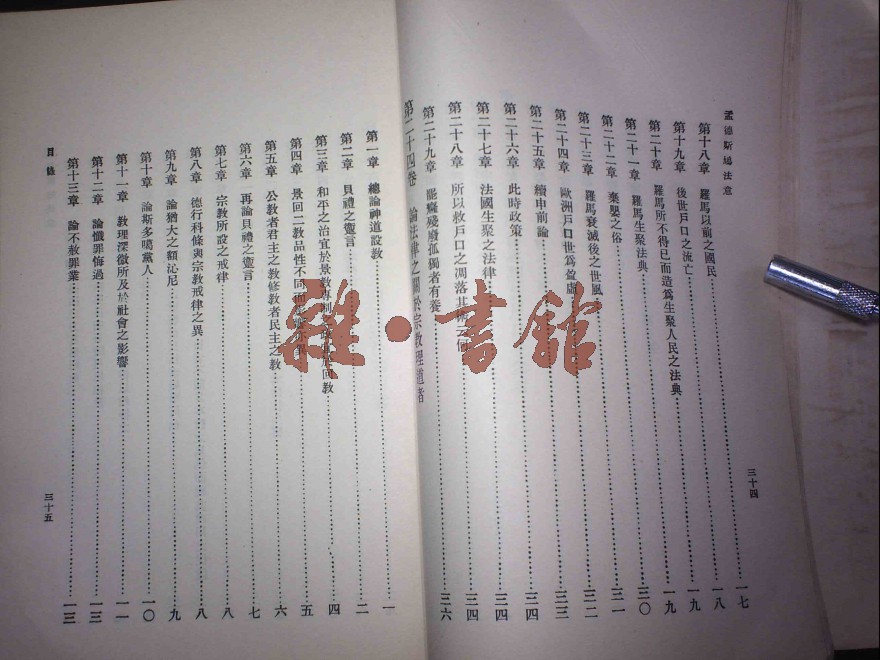 孟德斯鳩法意
三十四
第十八章 羅馬以前之國民 一七
第十九章 後世戶口之流亡 一八
第二十章 羅馬所不得已而造爲生聚人民之法典 一九
第二十一章 羅馬生聚法典 一九
第二十二章 棄嬰之俗 三〇
第二十三章 羅馬衰滅後之世風 三一
第二十四章 歐洲戶口世爲盈虛 三二
第二十五章 續申前論 三三
第二十六章 此時政策 三四
第二十七章 法國生聚之法律 三四
第二十八章 所以救戶口之凋落其 三四
第二十九章 罷癃殘廢孤獨者有養 三六
第二十四卷 論法律之關於宗教理道者
第一章 總論神道設教 一
第二章 貝禮之讆言 二
第三章 和平之治宜於景教專制 回教 四
第四章 景回二教品性不同而 五
第五章 公教者君主之教修教者民主之教 六
第六章 再論貝禮之讆言 七
第七章 宗教所設之戒律 八
第八章 德行科條與宗教戒律之異 八
第九章 論猶大之額沁尼 九
第十章 論斯多噶黨人 一〇
第十一章 教理深微所及於社會之影響 一一
第十二章 論懺罪悔過 一三
第十三章 論不赦罪業 一三
目錄
三十五
雜·書館